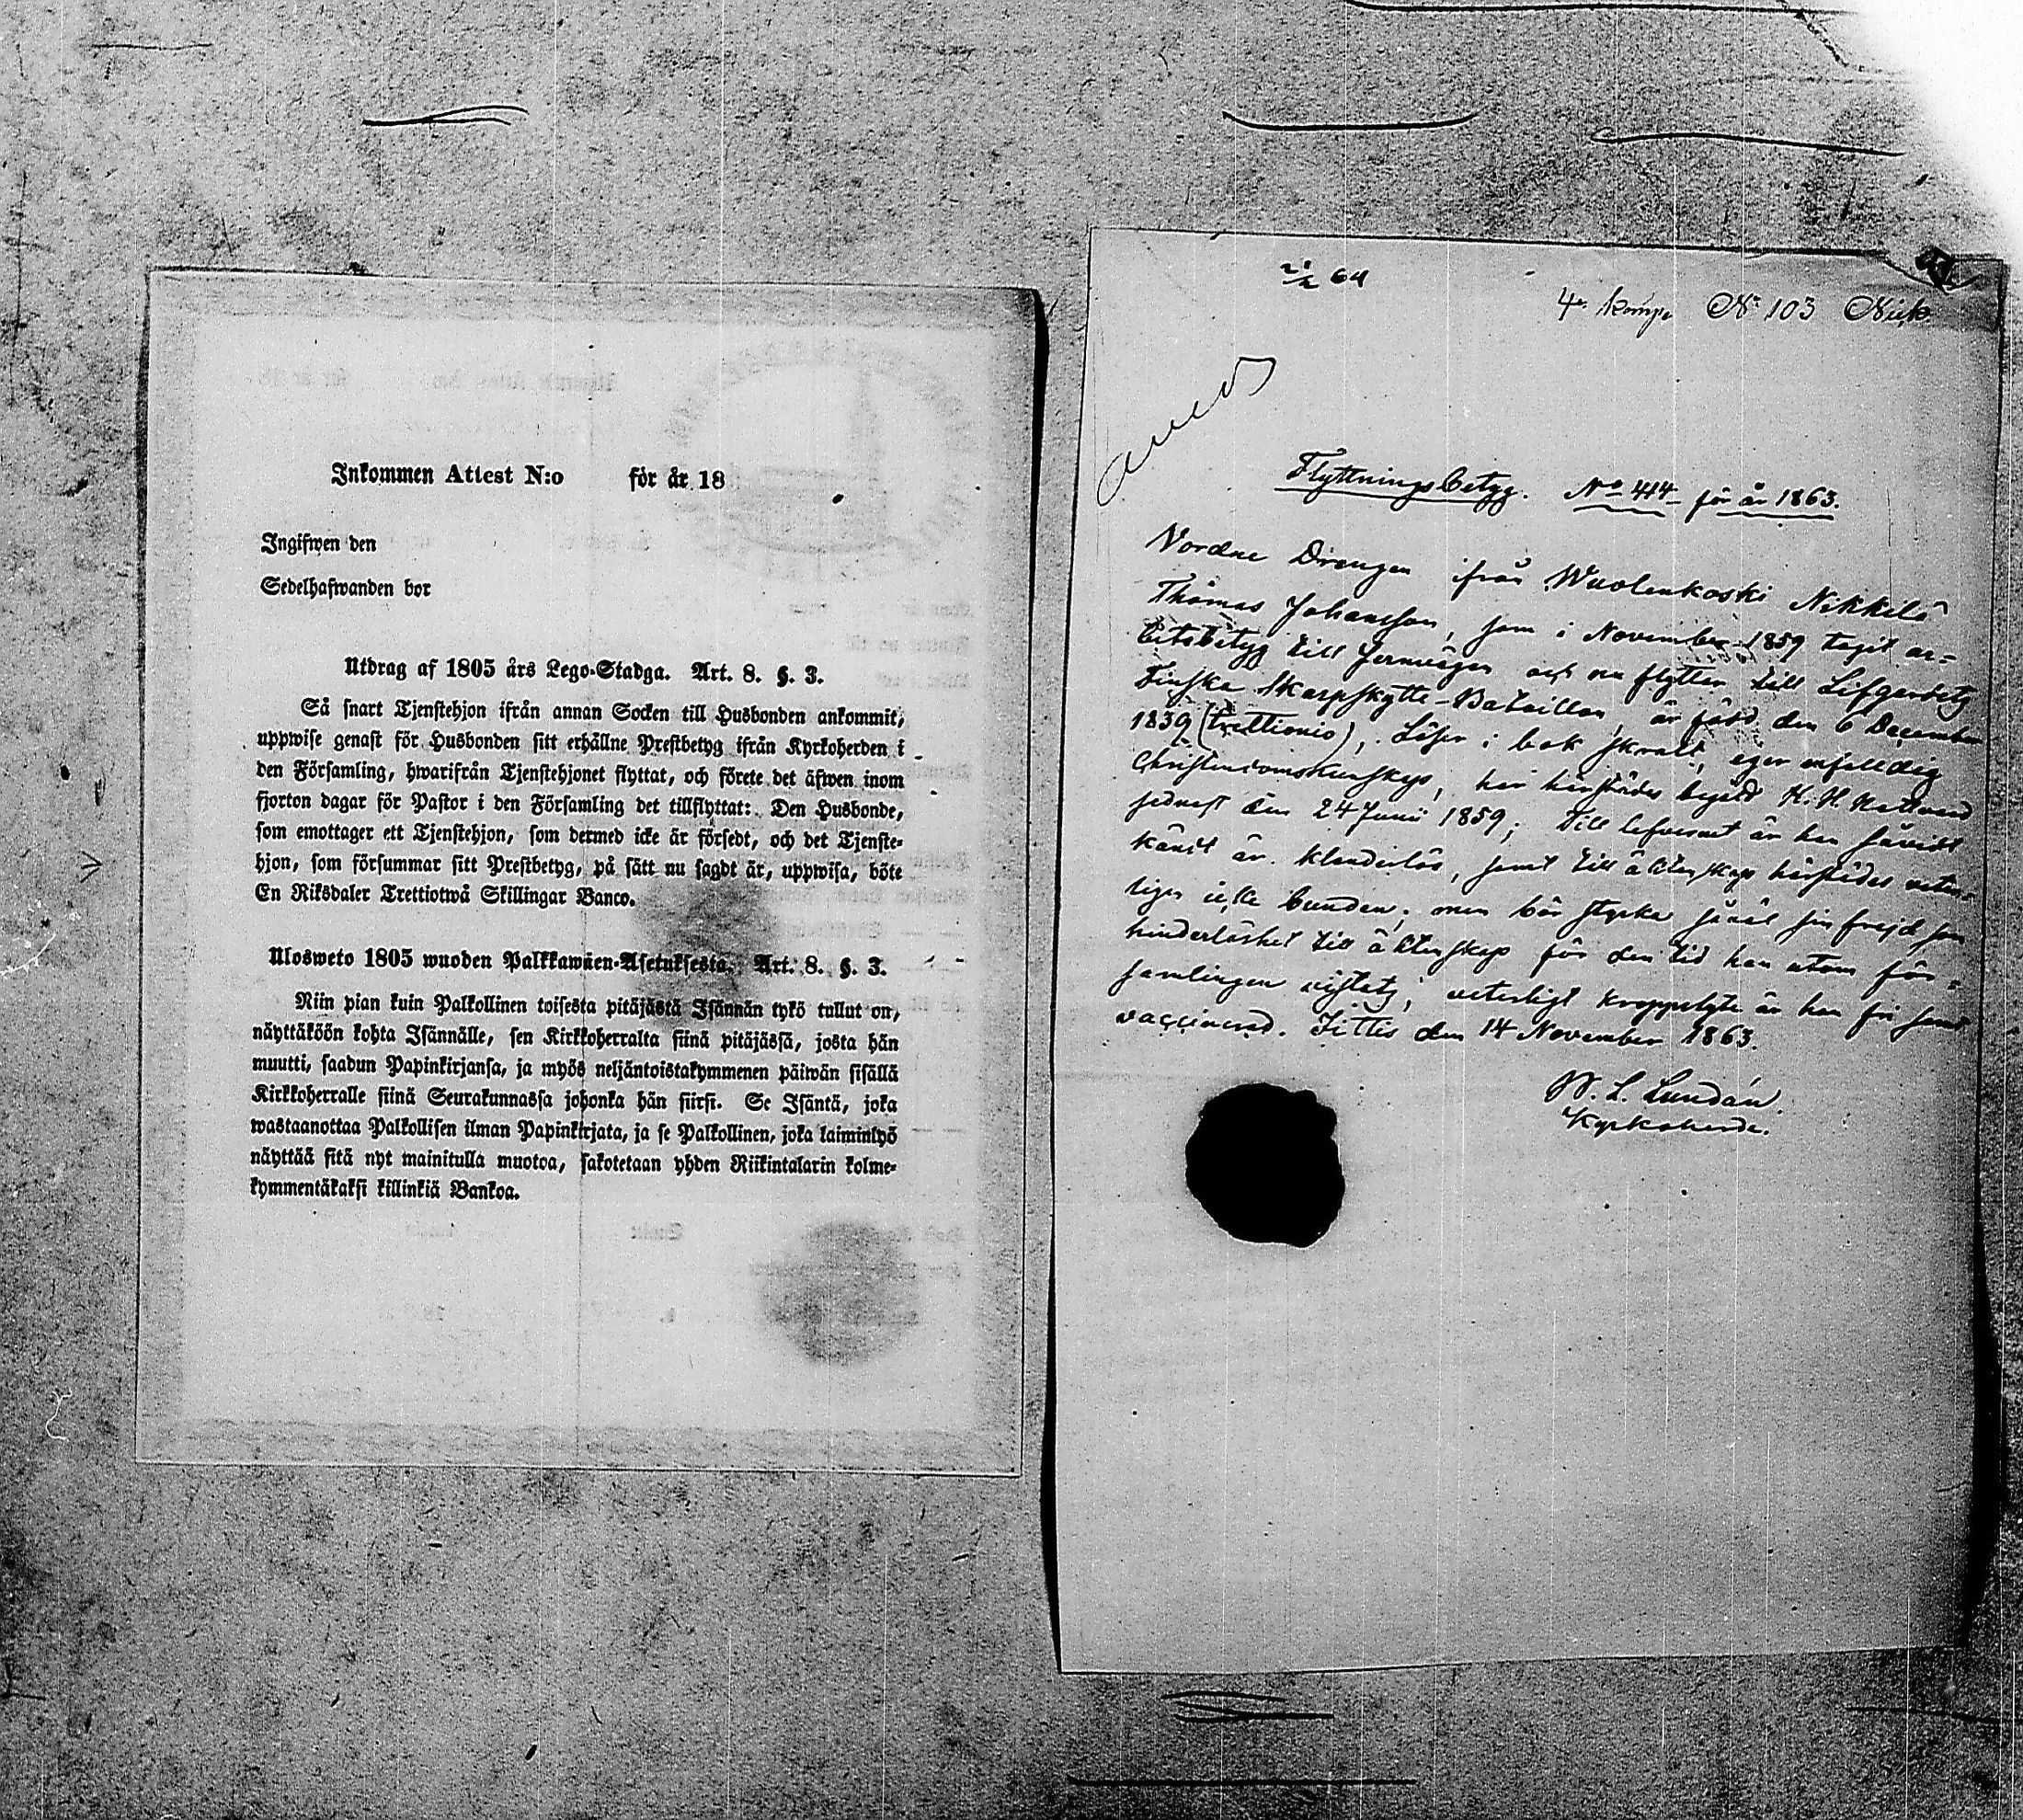 Inkommen Attest N:o för år 18
Ingifwen den
Sedelhafwanden bor
Utdrag af 1805 års Lego-Stadga. Art. 8. §. 3.
Så snart Tjenstehjon ifrån annan Socken till Husbonden ankommit,
uppwise genast för Husbonden sitt erhållne Prestbetyg ifrån Kyrkoherden i
den Församling, hwarifrån Tjenstehjonet flyttat, och förete det äfwen inom
fjorton dagar för Pastor i den Församling det tillflyttat: Den Husbonde,
som emottager ett Tjenstehjon, som dermed icke är försedt, och det Tjenste-
hjon, som försummar sitt Prestbetyg, på sätt nu sagdt är, uppwisa, böte
En Riksdaler Trettiotwå Skillingar Banco.
Ulosweto 1805 wuoden Palkkawäen-Asetuksesta. Art. 8. §. 3.
Niin pian kuin Palkollinen toisesta pitäjästä Isännän tykö tullut on,
näyttäköön kohta Isännälle, sen Kirkkoherralta siinä pitäjässä, josta hän
muutti, saadun Papinkirjansa, ja myös neljäntoistakymmenen päiwän sisällä
Kirkkoherralle siinä Seurakunnassa johonka hän siirsi. Se Isäntä, joka
wastaanottaa Palkollisen ilman Papinkirjata, ja se Palkollinen, joka laiminlyö
näyttää sitä nyt mainitulla muotoa, sakotetaan yhden Riikintalarin kolme-
kymmentäkaksi killinkiä Bankoa.
64
4e komp. No 103 Nick
Flyttningsbetyg. No 414 för år 1863.
Vordne Drengen ifrån Wuolenkoski Nikkilä
Thomas Johansson, som i November 1859 tagit ar-
betsbetyg till Jernvägen och nu flyttar till Lifgardets
Finska Skarpskytte-Bataillon, är född den 6 December
1839 (trettionio), Läser i bok skralt, eger enfalldig
Christendomskunskap, har härstädes begått H. H. Nattvard
sednast den 24 Junii 1859; till lefvernet är han såvidt
kändt är klanderlös, samt till äktenskap härstädes veter-
ligen icke bunden, men bör styrka såväl sin frejd som
hinderlöshet till äktenskap för den tid han utom för-
samlingen vistats; veterligt kroppslyte är han fri samt
vaccinerad. Jittis den 14 November 1863.
W. L. Lundán.
Kyrkoherde.